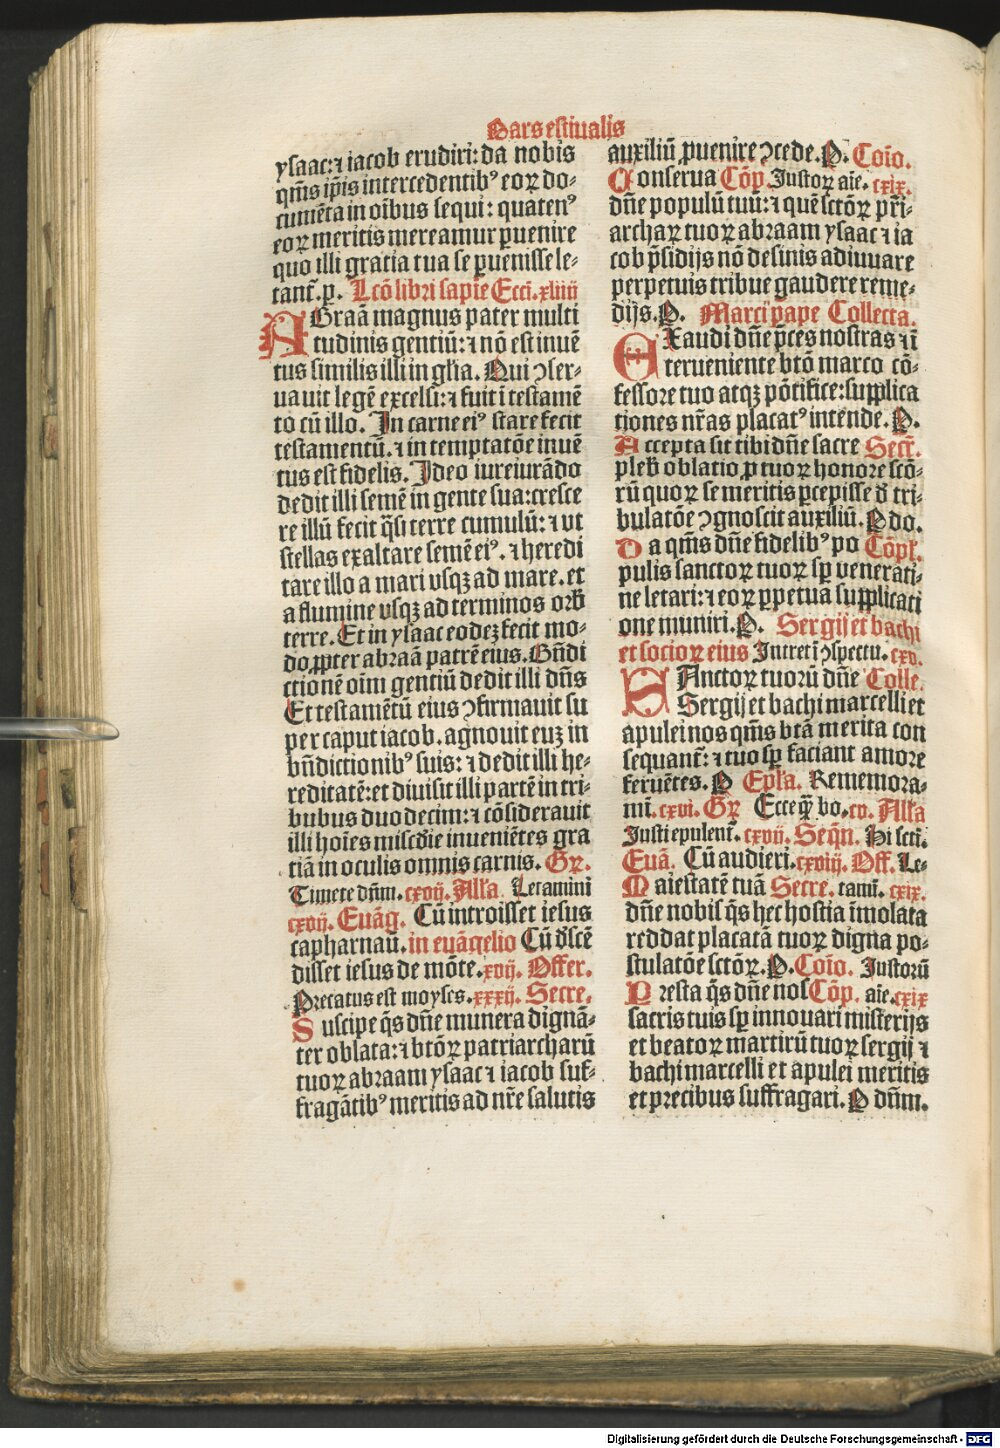 Pars estiualis
ysaac: ⁊ iacob erudiri: da nobis
qm̄s ip̄is intercedentibꝰ eoꝝ do-
cumēta in oībus sequi: quatenꝰ
eoꝝ meritis mereamur ꝑuenire
quo illi gratia tua se ꝑuenisse le-
tant̄. p. Lcō libri sapiē Ecci. xliiij
ABraā magnus pater multi
tudinis gentiū: ⁊ nō est inuē
tus similis illi in gl̄ia. Qui ↄser-
uauit legē excelsi: ⁊ fuit ī testamē
to cū illo. In carne eiꝰ stare fecit
testamentū. ⁊ in temptatōe inuē
tus est fidelis. Ideo iureiurādo
dedit illi semē in gente sua: cresce
re illū fecit q̄si terre cumulū: ⁊ vt
stellas exaltare semē eiꝰ. ⁊ heredi
tare illo a mari vsqꝫ ad mare. et
a flumine vsqꝫ ad terminos orb̄
terre. Et in ysaac eodeꝫ fecit mo-
do ꝓpter abraā patrē eius. Bn̄di
ctionē oīm gentiū dedit illi dn̄s
Et testamētū eius ↄfirmauit su
per caput iacob. agnouit euꝫ in
bn̄dictionibꝰ suis: ⁊ dedit illi he-
reditatē: et diuisit illi partē in tri-
bubus duodecim: ⁊ cōsiderauit
illi hoīes misc̄die inueniētes gra
tiā in oculis omnis carnis. Gꝝ.
Timete dn̄m. cxvij. Alľa. Letamini
cxvij. Euāg. Cū introisset iesus
capharnaū. in euāgelio Cū d̄scē
disset iesus de mōte. xvij. Offer.
Precatus est moyses. xxxij. Secre.
Suscipe q̄s dn̄e munera dignā-
ter oblata: ⁊ btōꝝ patriarcharū
tuoꝝ abraam ysaac ⁊ iacob suf-
fragātibꝰ meritis ad nr̄e salutis
auxiliū ꝓuenire ↄcede. P. Coīo.
Conserua Cōp̄. Justoꝝ aīe. cxix.
dn̄e populū tuū: ⁊ quē sctōꝝ pr̄i-
archaꝝ tuoꝝ abraam ysaac ⁊ ia
cob p̄sidijs nō desinis adiuuare
perpetuis tribue gaudere reme-
dijs. P. Marci pape Collecta.
EXaudi dn̄e p̄ces nostras ⁊ ī
terueniente btō marco cō-
fessore tuo atqꝫ pōtifice: supplica
tiones nr̄as placatꝰ intende. P.
Accepta sit tibi dn̄e sacre Secr̄.
pleb̄ oblatio ꝓ tuoꝝ honore scō-
rū quoꝝ se meritis ꝑcepisse d̄ tri-
bulatōe ↄgnoscit auxiliū. P do.
Da qm̄s dn̄e fidelibꝰ po Cōpľ.
pulis sanctoꝝ tuoꝝ sꝑ venerati-
ne letari: ⁊ eoꝝ ꝑpetua supplicati
one muniri. P. Sergij et bachi
et socioꝝ eius Intret ī ↄspectu. cxv.
SAnctoꝝ tuorū dn̄e Colle.
Sergij et bachi marcelli et
apulei nos qm̄s btā merita con
sequant̄: ⁊ tuo sꝑ faciant amore
feruētes. P Epľa. Rememora-
mī. cxvi. Gꝝ Ecce q̄ bo. cv. Alľa
Justi epulent̄. cxvij. Seqn̄. Hi scti.
Euā. Cū audieri. cxviij. Off. Le-
Maiestatē tuā Secre. tami. cxix.
dn̄e nobis q̄s hec hostia īmolata
reddat placatā tuoꝝ digna po-
stulatōe sctōꝝ. P. Coīo. Justorū
Presta q̄s dn̄e nos Cōp. aīe. cxix
sacris tuis sꝑ innouari misterijs
et beatoꝝ martirū tuoꝝ sergij ⁊
bachi marcelli et apulei meritis
et precibus suffragari. P dn̄m.
Digitalisierung gefördert durch die Deutsche Forschungsgemeinschaft - DFG